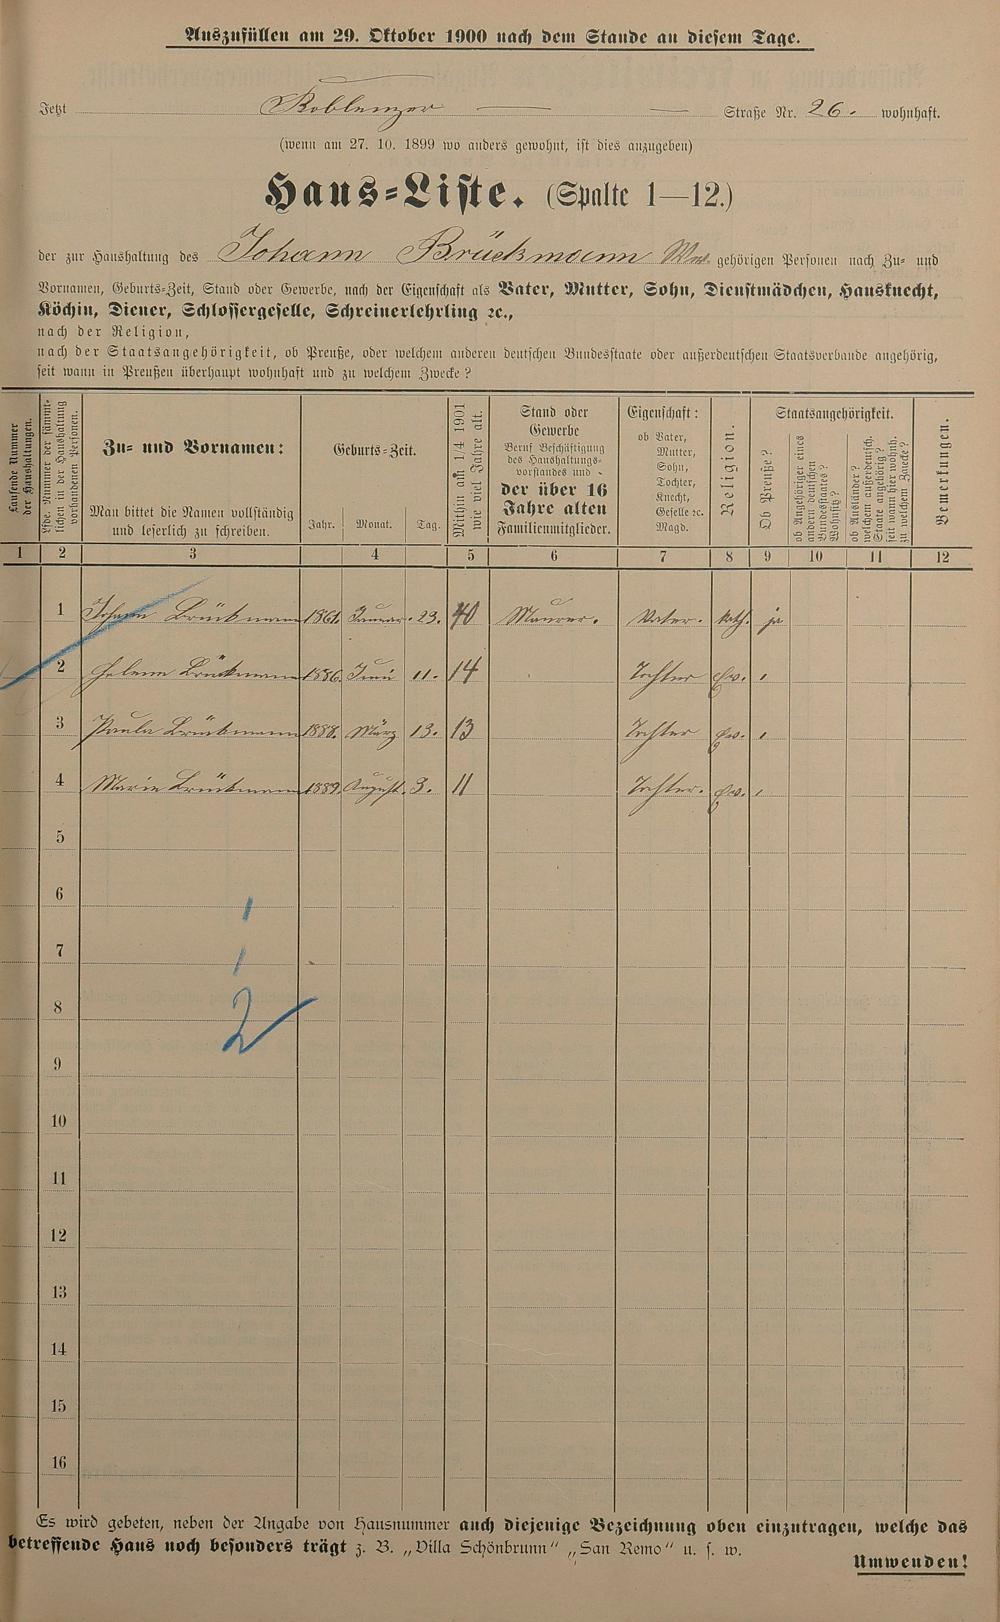 Auszufüllen am 29. Oktober 1900 nach dem Stande an diesem Tage.
Jetzt Koblenzer — — Straße Nr. 26. wohnhaft.
(wenn am 27. 10. 1899 wo anders gewohnt, ist dies anzugeben)
Haus-Liste. (Spalte 1—12.)
der zur Haushaltung des Johann Brückmann Ww. gehörigen Personen nach Zu- und
Vornamen, Geburts-Zeit, Stand oder Gewerbe, nach der Eigenschaft als Vater, Mutter, Sohn, Dienstmädchen, Hausknecht,
Köchin, Diener, Schlossergeselle, Schreinerlehrling ꝛc.,
nach der Religion,
nach der Staatsangehörigkeit, ob Preuße, oder welchem anderen deutschen Bundesstaate oder außerdeutschen Staatsverbande angehörig,
seit wann in Preußen überhaupt wohnhaft und zu welchem Zwecke?
Laufende Nummer
der Haushaltungen.
Lfde. Nummer der sämmt-
lichen in der Haushaltung
vorhandenen Personen.
Zu- und Vornamen:
Man bittet die Namen vollständig
und leserlich zu schreiben.
Geburts-Zeit.
Jahr. Monat. Tag.
Mithin am 1/4 1901
wie viel Jahre alt.
Stand oder
Gewerbe
Beruf Beschäftigung
des Haushaltungs-
vorstandes und
der über 16
Jahre alten
Familienmitglieder.
Eigenschaft:
ob Vater,
Mutter,
Sohn,
Tochter,
Knecht,
Geselle ꝛc.
Magd.
Religion.
Staatsangehörigkeit.
Ob Preuße?
ob Angehöriger eines
andern deutschen
Bundesstaates?
Wohnsitz?
ob Ausländer?
welchem außerdeutsch.
Staate angehörig?
seit wann hier wohnh.
zu welchem Zwecke?
Bemerkungen.
1 2 3 4 5 6 7 8 9 10 11 12
1 Johann Brückmann 1861. Januar. 23. 40 Maurer. Vater. kath. ja
2 Helena Brückmann 1886. Juni 11. 14 Tochter Ev. "
3 Paula Brückmann 1888. März 13. 13 Tochter Ev. "
4 Maria Brückmann 1889. August. 3. 11 Tochter. Ev. "
5
6 1
7 1
8 2
9
10
11
12
13
14
15
16
Es wird gebeten, neben der Angabe von Hausnummer auch diejenige Bezeichnung oben einzutragen, welche das
betreffende Haus noch besonders trägt z. B. „Villa Schönbrunn" „San Remo" u. s. w.
Umwenden!